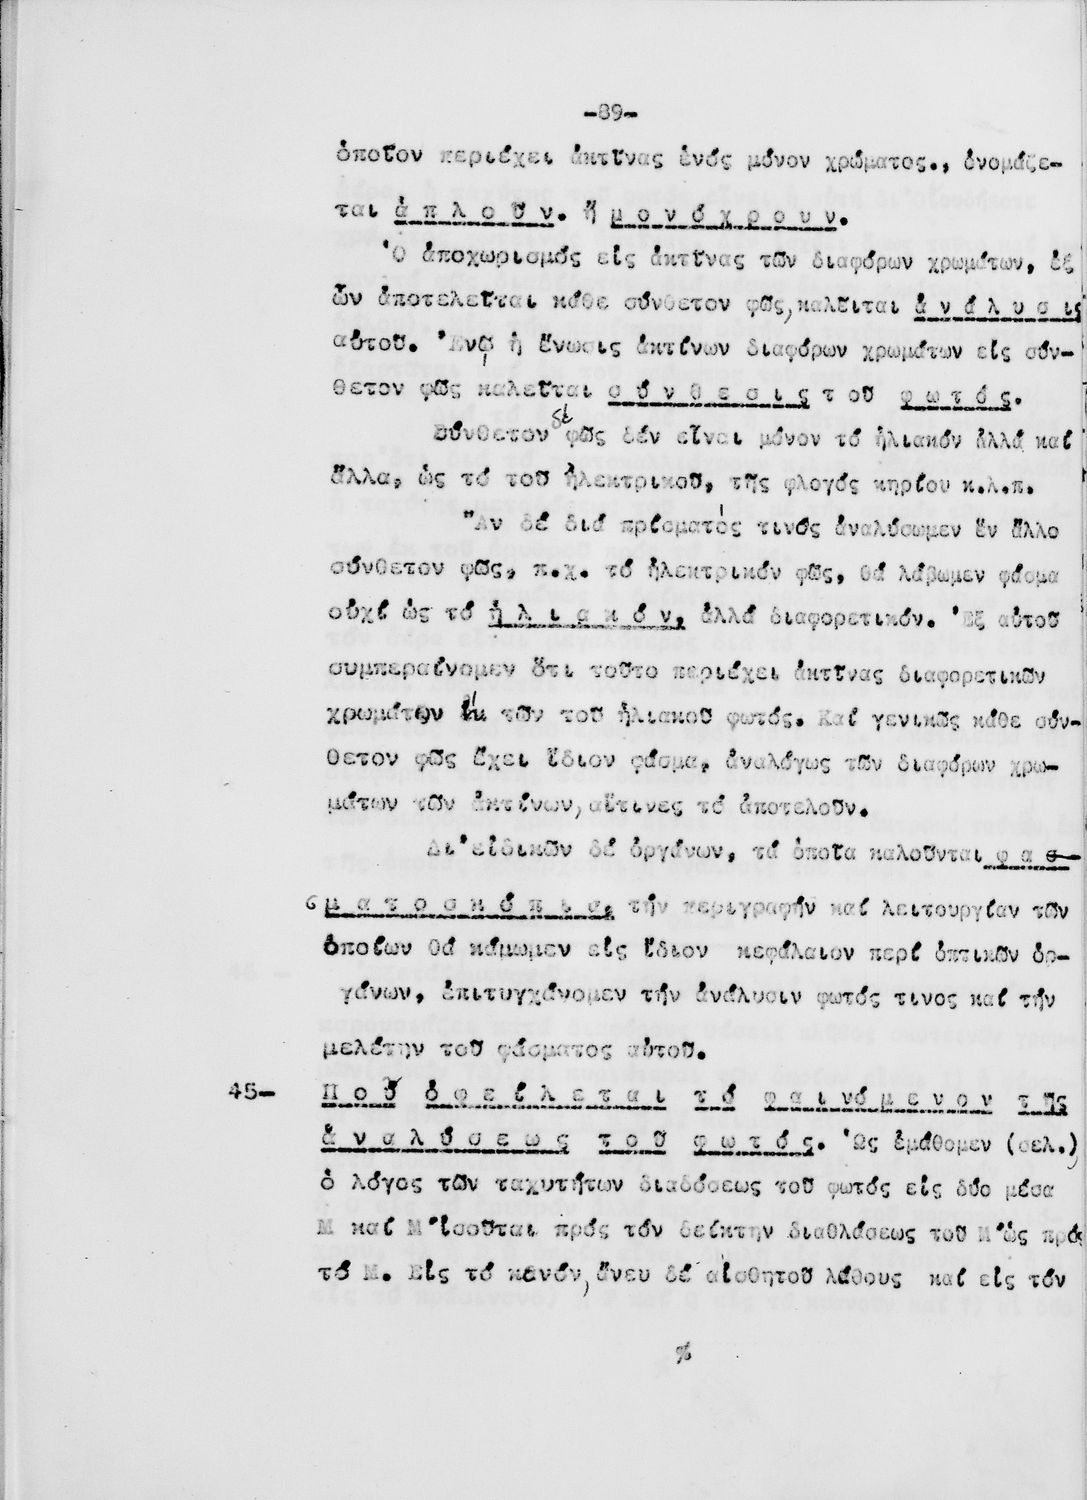 -89-
ὁποῖον περιέχει ἀκτῖνας ἑνός μόνον χρώματος., ὀνομάζε-
ται ἁ π λ ο ῦ ν. ἤ μ ο ν ό χ ρ ο υ ν.
Ὁ ἀποχωρισμός εἰς ἀκτῖνας τῶν διαφόρων χρωμάτων, ἐξ
ὧν ἀποτελεῖται κάθε σύνθετον φῶς, καλεῖται ἀ ν ά λ υ σ ις
αὐτοῦ. Ἐνῷ ἡ ἕνωσις ἀκτίνων διαφόρων χρωμάτων εἰς σύν-
θετον φῶς καλεῖται σ ύ ν θ ε σ ι ς τ οῦ φ ω τ ό ς.
Σύνθετον δέ φῶς δέν εἶναι μόνον τό ἡλιακόν ἀλλά καί
ἄλλα, ὡς τό τοῦ ἠλεκτρικοῦ, τῆς φλογός κηρίου κ.λ.π.
Ἄν δέ διά πρίσματός τινός ἀναλύσωμεν ἕν ἄλλο
σύνθετον φῶς, π.χ. τό ἠλεκτρικόν φῶς, θά λάβωμεν φάσμα
οὐχί ὡς τό ἡ λ ι α κ ό ν, ἀλλά διαφορετικόν. Ἐξ αὐτοῦ
συμπεραίνομεν ὅτι τοῦτο περιέχει ἀκτῖνας διαφορετικῶν
χρωμάτων ἐκ τῶν τοῦ ἡλιακοῦ φωτός. Καί γενικῶς κάθε σύν-
θετον φῶς ἔχει ἴδιον φάσμα, ἀναλόγως τῶν διαφόρων χρω-
μάτων τῶν ἀκτίνων, αἵτινες τό ἀποτελοῦν.
Δι'εἰδικῶν δέ ὀργάνων, τά ὁποῖα καλοῦνται φ α σ-
μ α τ ο σ κ ό π ι α, τήν περιγραφήν καί λειτουργίαν τῶν
ὁποίων θά κάμωμεν εἰς ἴδιον κεφάλαιον περί ὀπτικῶν ὀρ-
γάνων, ἐπιτυγχάνομεν τήν ἀνάλυσιν φωτός τινος καί τήν
μελέτην τοῦ φάσματος αὐτοῦ.
45- Π ο ῦ ὀ φ ε ί λ ε τ α ι τ ό φ α ι ν ό μ ε ν ο ν τ ῆς
ἀ ν α λ ύ σ ε ω ς τ ο ῦ φ ω τ ό ς. Ὡς ἐμάθομεν (σελ.)
ὁ λόγος τῶν ταχυτήτων διαδόσεως τοῦ φωτός εἰς δύο μέσα
Μ καί Μ'ἰσοῦται πρός τόν δείκτην διαθλάσεως τοῦ Μ'ὡς πρός
τό Μ. Εἰς τό κενόν, ἄνευ δέ αἰσθητοῦ λάθους καί εἰς τόν
%